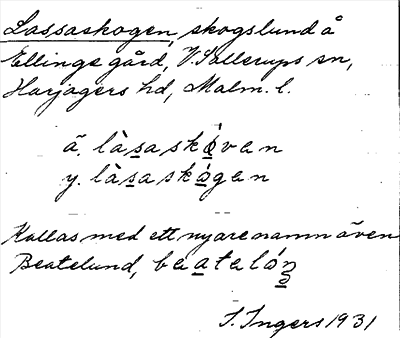 Lassaskogen, skogslund å
Ellinge gård, V. Sallerups sn,
Harjagers hd, Malm. l.
ä. làsaskóven
y. làsaskógen
Kallas med ett nyare namn även
Beatelund, beatelón
I. Ingers 1931